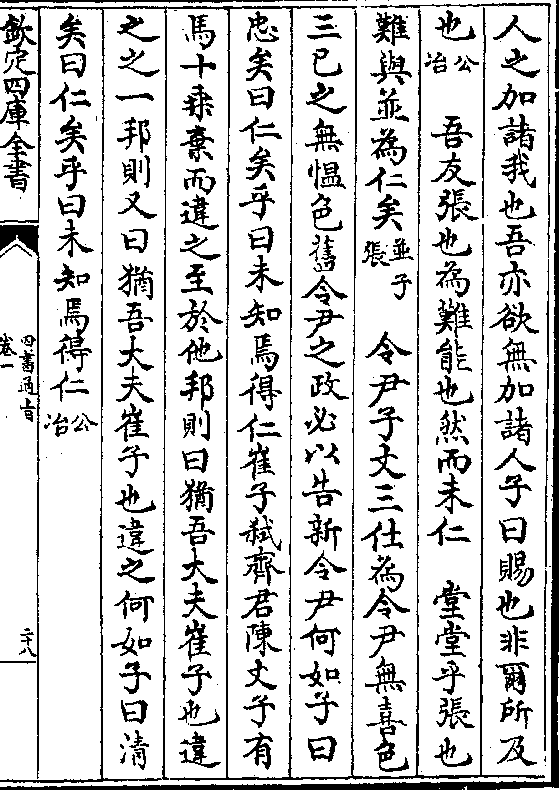 人之加諸我也吾亦欲無加諸人子曰賜也非爾所及
也公冶　吾友張也為難能也然而未仁　堂堂乎張也
難與並為仁矣並子張　令尹子文三仕為令尹無喜色
三已之無愠色舊令尹之政必以告新令尹何如子曰
忠矣曰仁矣乎曰未知焉得仁崔子弑齊君陳文子有
馬十乗棄而違之至於他邦則曰猶吾大夫崔子也違
之之一邦則又曰猶吾大夫崔子也違之何如子曰清
矣曰仁矣乎曰未知焉得仁公冶
欽定四庫全書
四書通旨
卷一
二十八